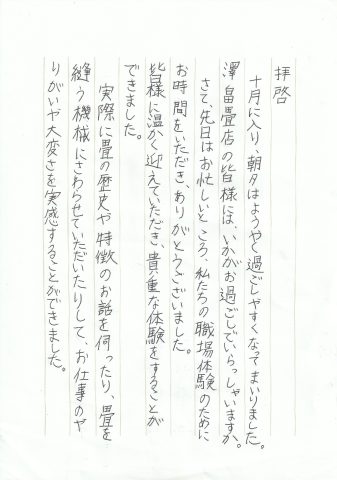 拝啓
十月に入り、朝夕はようやく過ごしやすくなってまいりました。
澤畠畳店の皆様には、いかがお過ごしでいらっしゃいますか。
さて、先日はお忙しいところ、私たちの職場体験のために
お時間をいただき、ありがとうございました。
皆様に温かく迎えていただき、貴重な体験をすることが
できました。
実際に畳の歴史や特徴のお話を伺ったり、畳を
縫う機械にさわらせていただいたりして、お仕事のや
りがいや大変さを実感することができました。